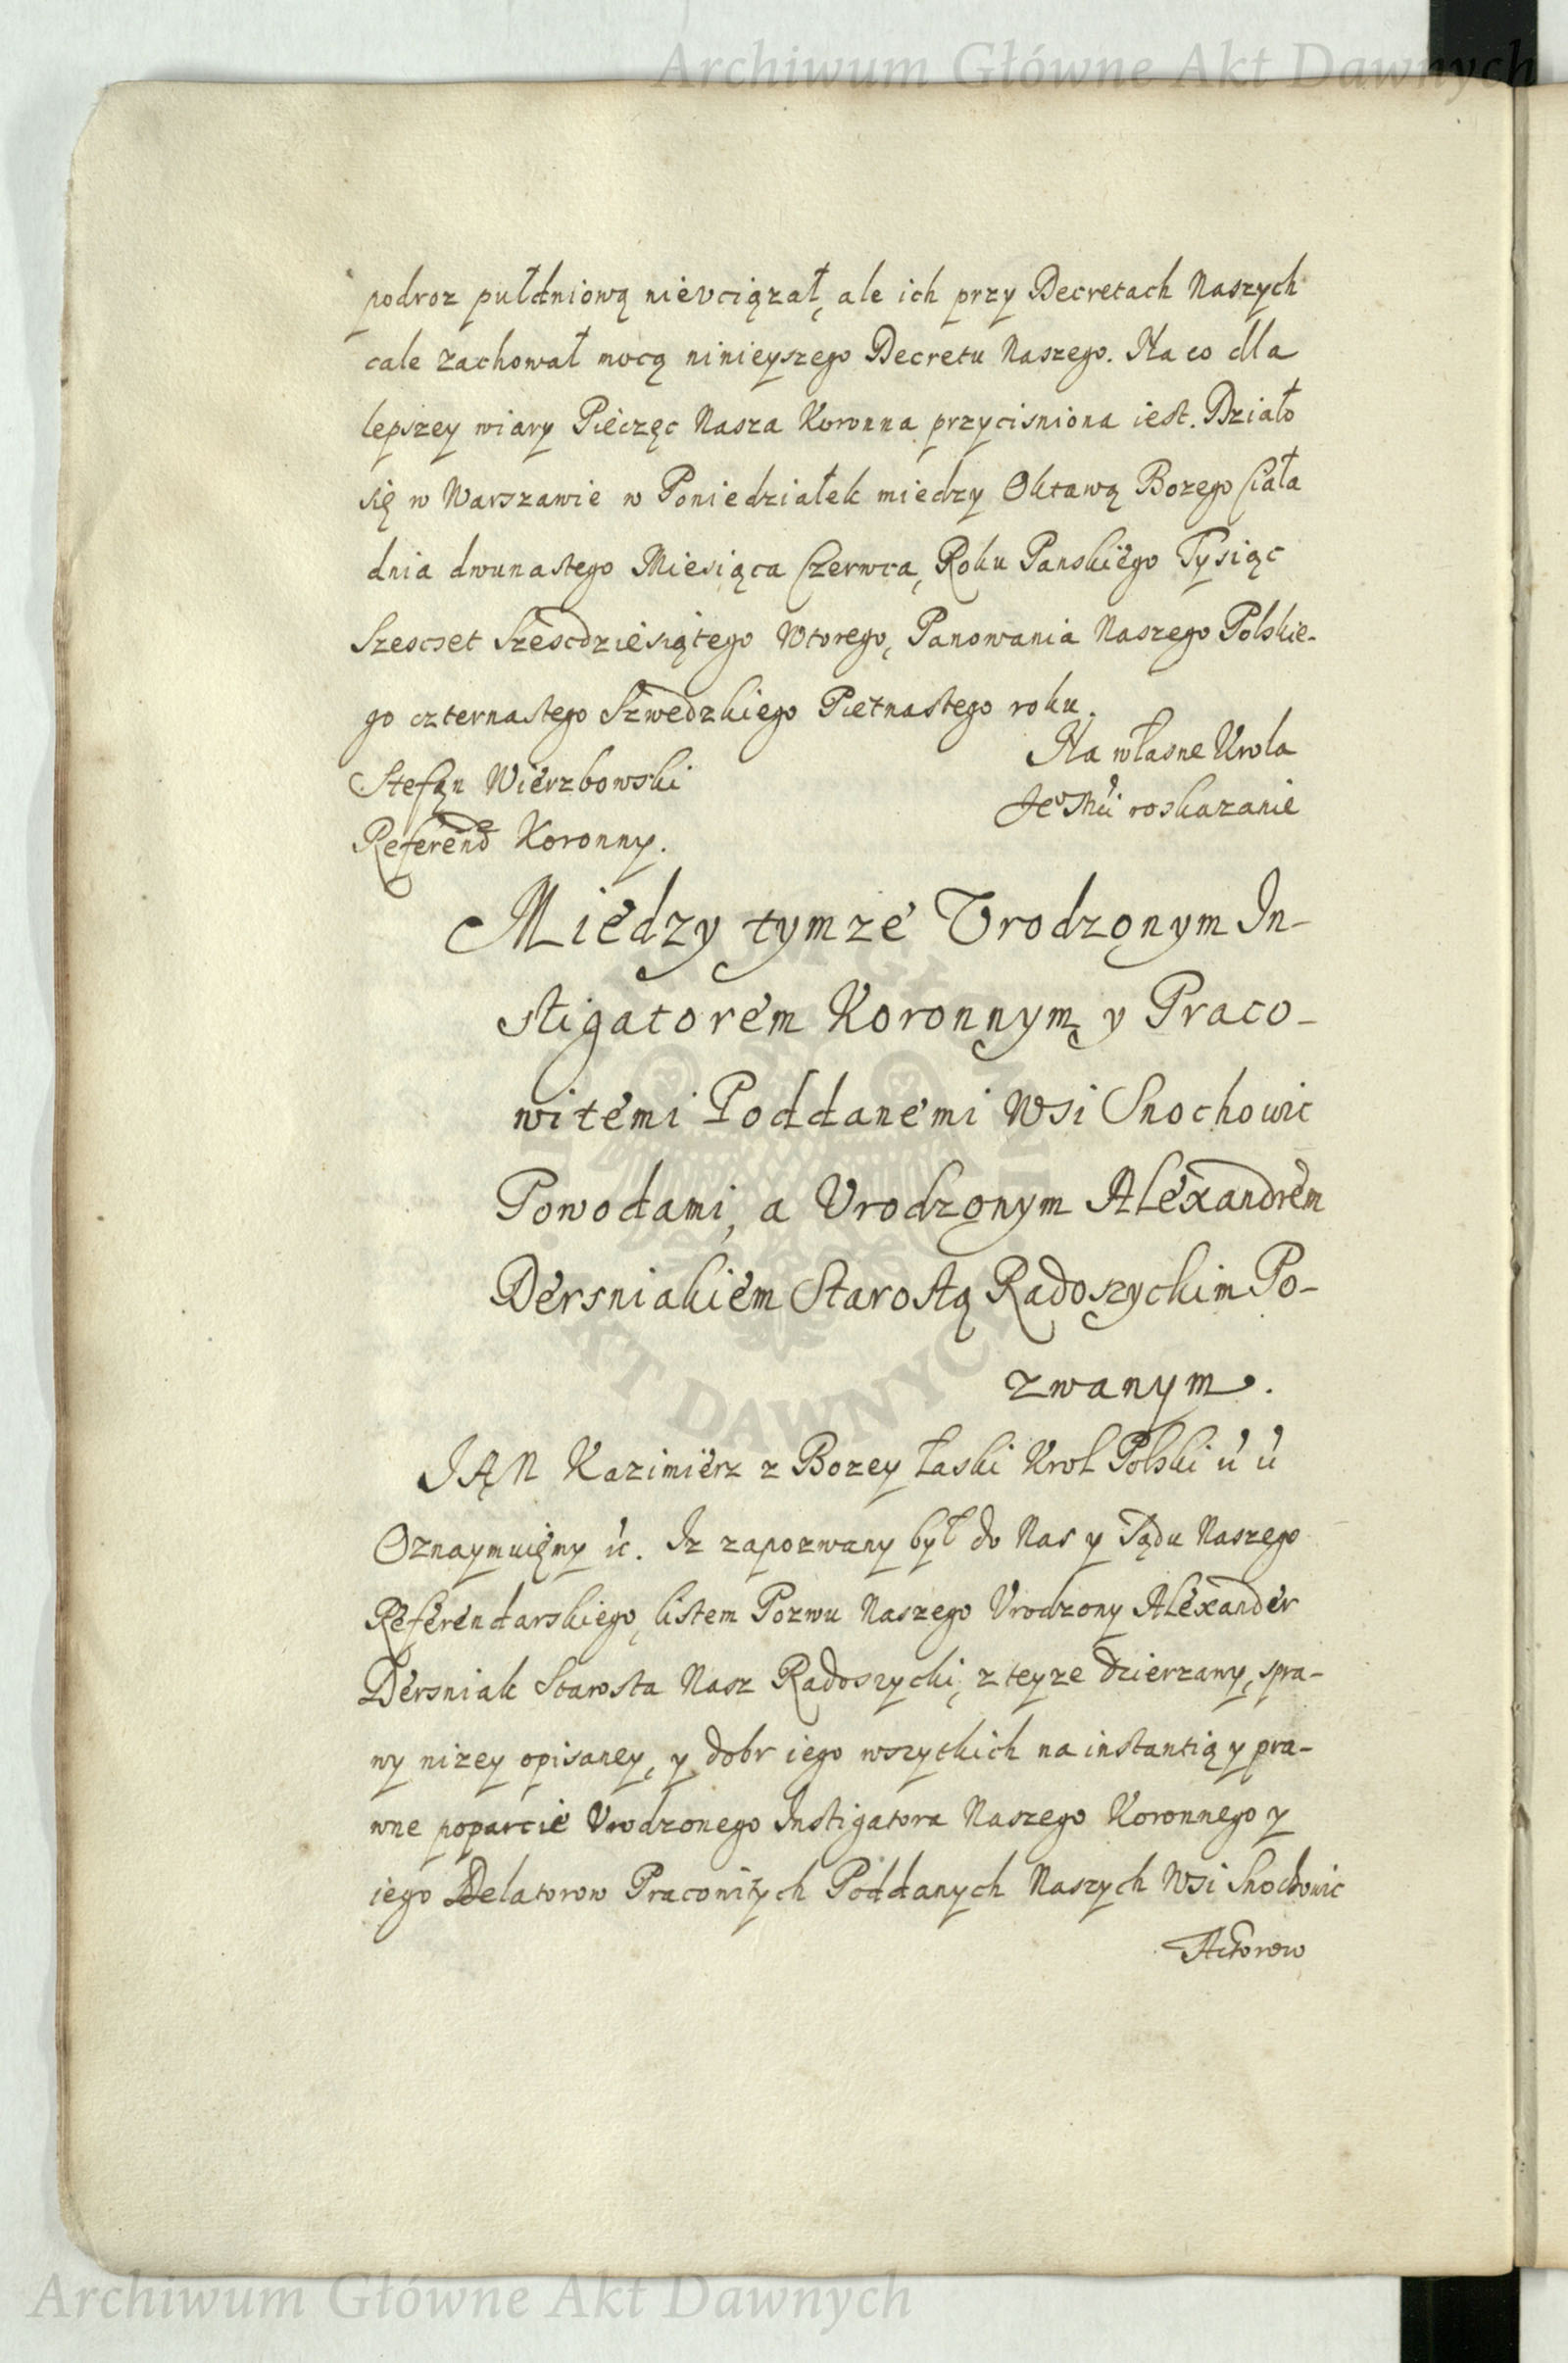 Archiwum Główne Akt Dawnych
podroz pułdniową nievciązał, ale ich przy Decretach Naszych
cale zachował mocą ninieyszego Decretu Naszego. Na co dla
lepszey wiary Pieczęc Nasza Koronna przycisniona iest. Działo
się w Warszawie w Poniedziałek miedzy Oktawą Bozego Ciała
dnia dwunastego Miesiąca Czerwca, Roku Panskiego Tysiąc
Szescset Szescdziesiątego Wtorego, Panowania Naszego Polskie-
go czternastego Szwedzkiego Pietnastego roku.
Na własne Krola
Stefan Wierzbowski
Je° Mći roskazanie
Referend Koronny.
Miedzy tymze Vrodzonym In-
stigatorem Koronnym, y Praco-
witemi Poddanemi Wsi Snochowic
Powodami, a Vrodzonym Alexandrem
Dersniakiem Starostą Radoszyckim Po-
zwanym.
JAN Kazimierz z Bozey Łaski Krol Polski
Oznaymuięmy ic. Iz zapozwany był do Nas y Sądu Naszego
Referendarskiego, listem Pozwu Naszego Vrodzony Alexander
Dersniak Starosta Nasz Radoszycki, z teyze dzierzawy, spra-
wy nizey opisaney, y dobr iego wszytkich na instantią y pra-
wne poparcie Vrodzonego Instigatora Naszego Koronnego y
iego Delatorow Pracowitych Poddanych Naszych Wsi Snochowic
Actorow
Archiwum Główne Akt Dawnych